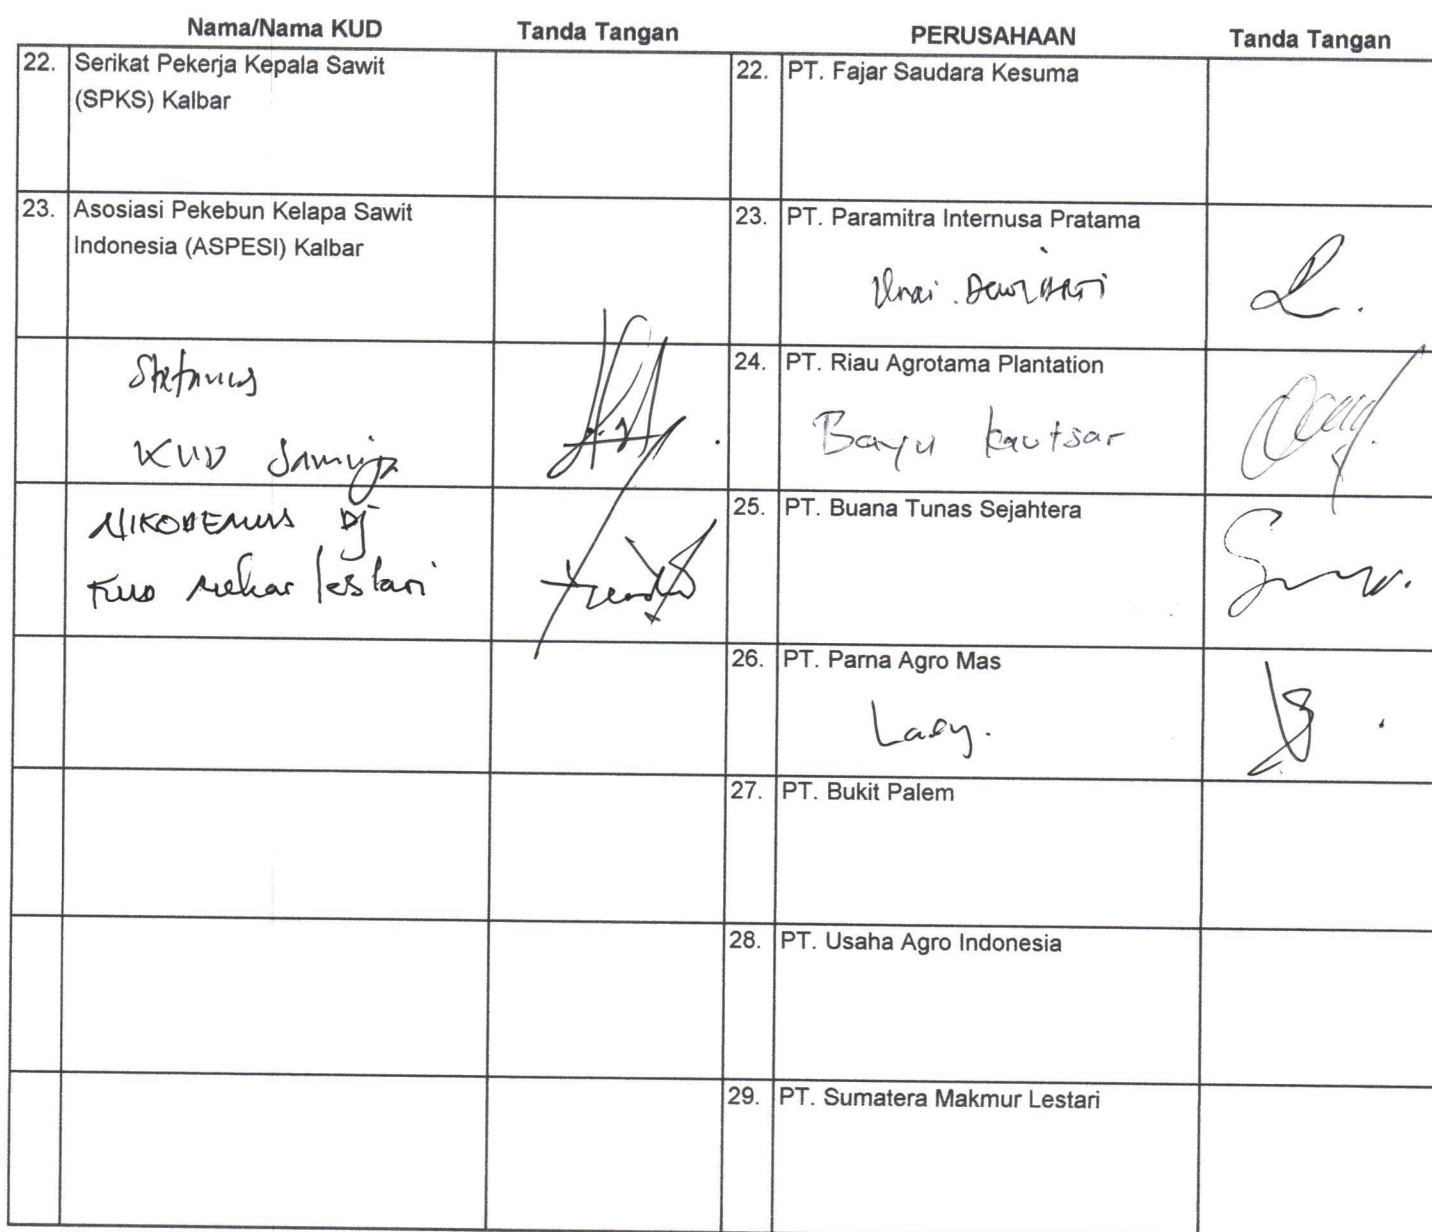 Nama/Nama KUD Tanda Tangan PERUSAHAAN Tanda Tangan
22. Serikat Pekerja Kepala Sawit
(SPKS) Kalbar
22. PT. Fajar Saudara Kesuma
23. Asosiasi Pekebun Kelapa Sawit
Indonesia (ASPESI) Kalbar
23. PT. Paramitra Internusa Pratama
Stefanus
KUD
24. PT. Riau Agrotama Plantation
Bayu Kautsar
NIKODEMUS Dj
KUD Mekar lestari
25. PT. Buana Tunas Sejahtera
26. PT. Parna Agro Mas
27. PT. Bukit Palem
28. PT. Usaha Agro Indonesia
29. PT. Sumatera Makmur Lestari